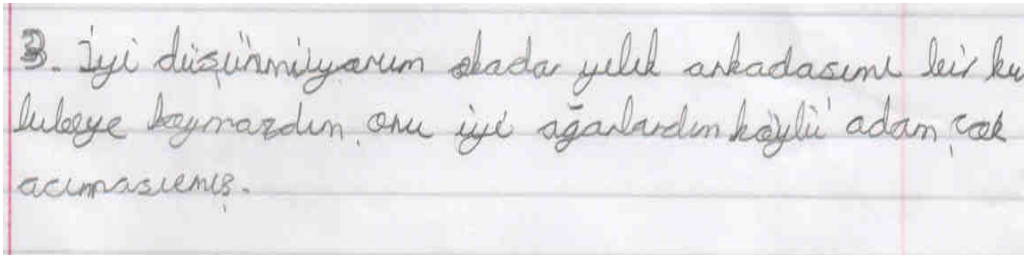 3. İyi düşünmüyorum okadar yıllık arkadasımı bir ku
lubeye koymazdım onu iyi ağarlardım köylü adam çok
acımasızmış.